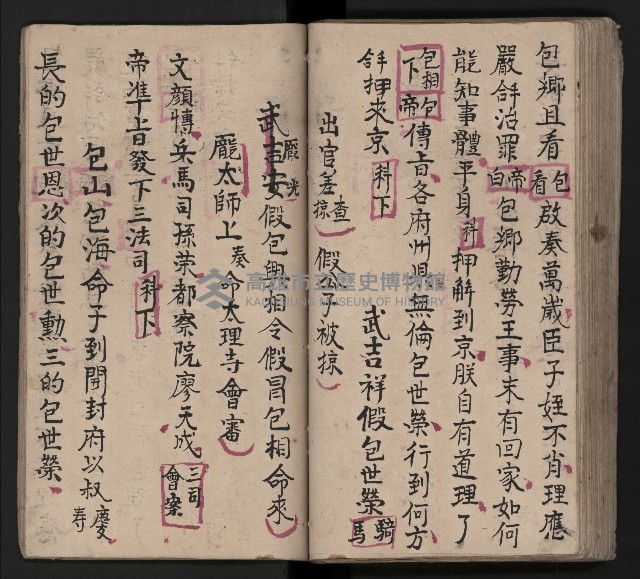 包卿且看 包看 啟奏萬歲臣子姪不肖理應
嚴辦治罪 帝白 包卿勤勞王事未有回家如何
能知事體平身 科 押解到京朕自有道理了
下 包相包帝 傳旨各府州縣無倫包世榮行到何方
辦押來京 科下 武吉祥假包世榮 騎馬
出官差 查掠 假公子被掠
武吉安 龐光 假包興相令假冒包相命來
龐太師上奏命大理寺會審
文顏慱兵馬司孫荣都察院廖天成 三司會案
帝準旨發下三法司 科下
包山包海命子到開封府以叔慶壽
長的包世恩次的包世勳三的包世榮
高雄市立歷史博物館
KAOHSIUNG MUSEUM OF HISTORY